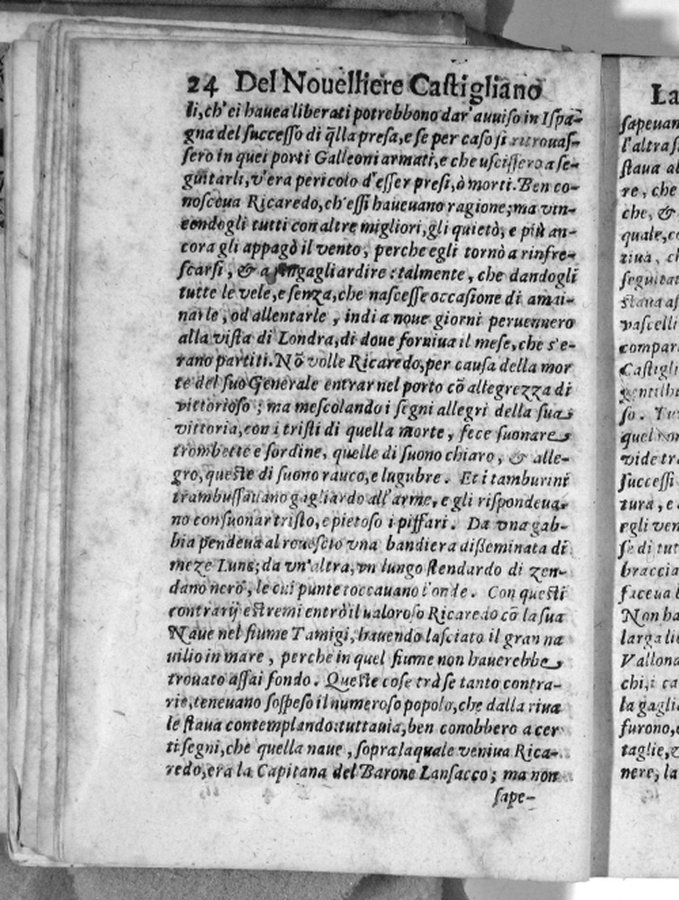 24 Del Nouelliere Castigliano
li, ch'ei hauea liberati potrebbono dar' auuiso in Ispa-
gna del successo di q̃lla presa, e se per caso si ritrouas-
sero in quei porti Galleoni armati, e che uscissero a se-
guitarli, v'era pericolo d'esser presi, ò morti. Ben co-
nosceua Ricaredo, ch'essi haueuano ragione; ma vin-
cendogli tutti con altre migliori, gli quietò, e più an-
cora gli appagò il vento, perche egli tornò a rinfre-
scarsi, & a ringagliardire: talmente, che dandogli
tutte le vele, e senza, che nascesse occasione di amai-
narle, od allentarle, indi a noue giorni peruennero
alla vista di Londra, di doue forniua il mese, che s'e-
rano partiti. Nõ volle Ricaredo, per causa della mor
te del suo Generale entrar nel porto cõ allegrezza di
vittorioso; ma mescolando i segni allegri della sua
vittoria, con i tristi di quella morte, fece suonare
trombette e sordine, quelle di suono chiaro, & alle-
gro, queste di suono rauco, e lugubre. Et i tamburini
trambussauano gagliardo all'arme, e gli rispondeua-
no con suonar tristo, e pietoso i piffari. Da vna gab-
bia pendeua al rouescio vna bandiera disseminata di
meze Lune; da vn'altra, vn lungo stendardo di zen-
dano nero, le cui punte toccauano l'onde. Con questi
contrarij estremi entrò il ualoroso Ricaredo cõ la sua
Naue nel fiume Tamigi, hauendo lasciato il gran na
uilio in mare, perche in quel fiume non hauerebbe
trouato assai fondo. Queste cose trà se tanto contra-
rie, teneuano sospeso il numeroso popolo, che dalla riua
le staua contemplando: tuttauia, ben conobbero a cer
ti segni, che quella naue, sopra la quale veniua Rica-
redo, era la Capitana del Barone Lansacco; ma non
sape-
La
sapeuan
l'altra s
staua al
re, che
che, &
quale, co
tiua, ch
seguitat
staua as
vascelli
compar
Castigli
gentilh
so.
quel
vide tr
successi
tura, e
egli ven
se di tut
braccia
faceua
Non ha
larga li
Vallona
chi, i ca
la gagli
furono, e
taglie, v
nere, la